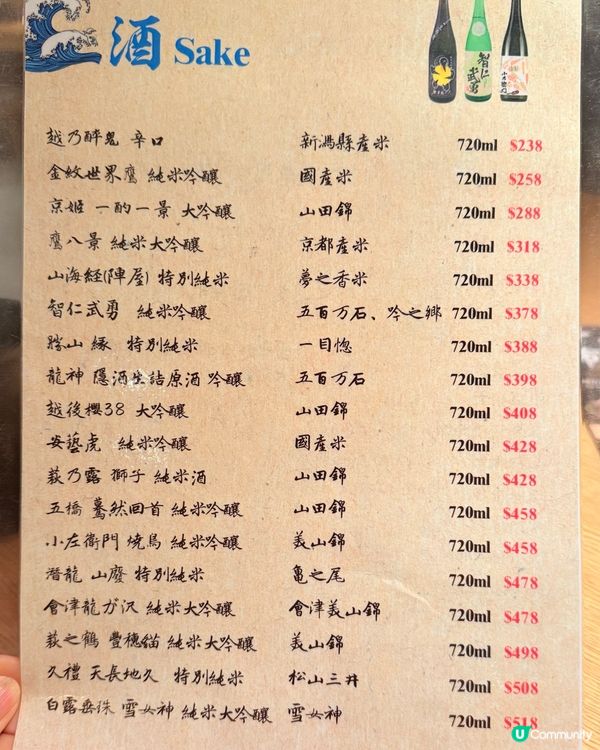 酒 Sake
智仁武勇
越乃醉鬼 辛口 新潟縣産米 720ml $238
金紋世界鷹 純米吟釀 國産米 720ml $258
京姬 一酌一景 大吟釀 山田錦 720ml $288
鷹八景 純米大吟釀 京都産米 720ml $318
山海経(陣屋) 特別純米 夢之香米 720ml $338
智仁武勇 純米吟釀 五百万石、吟之鄉 720ml $378
勝山 縁 特別純米 一目惚 720ml $388
龍神 隱酒生詰原酒 吟釀 五百万石 720ml $398
越後櫻38 大吟釀 山田錦 720ml $408
安藝虎 純米吟釀 國産米 720ml $428
萩乃露 獅子 純米酒 山田錦 720ml $428
五橋 驀然回首 純米吟釀 山田錦 720ml $458
小左衛門 焼鳥 純米吟釀 美山錦 720ml $458
潛龍 山廢 特別純米 亀之尾 720ml $478
會津龍が沢 純米大吟釀 會津美山錦 720ml $478
萩之鶴 豐穗貓 純米大吟釀 美山錦 720ml $498
久禮 天長地久 特別純米 松山三井 720ml $508
白露垂珠 雪女神 純米大吟釀 雪女神 720ml $518
U Community